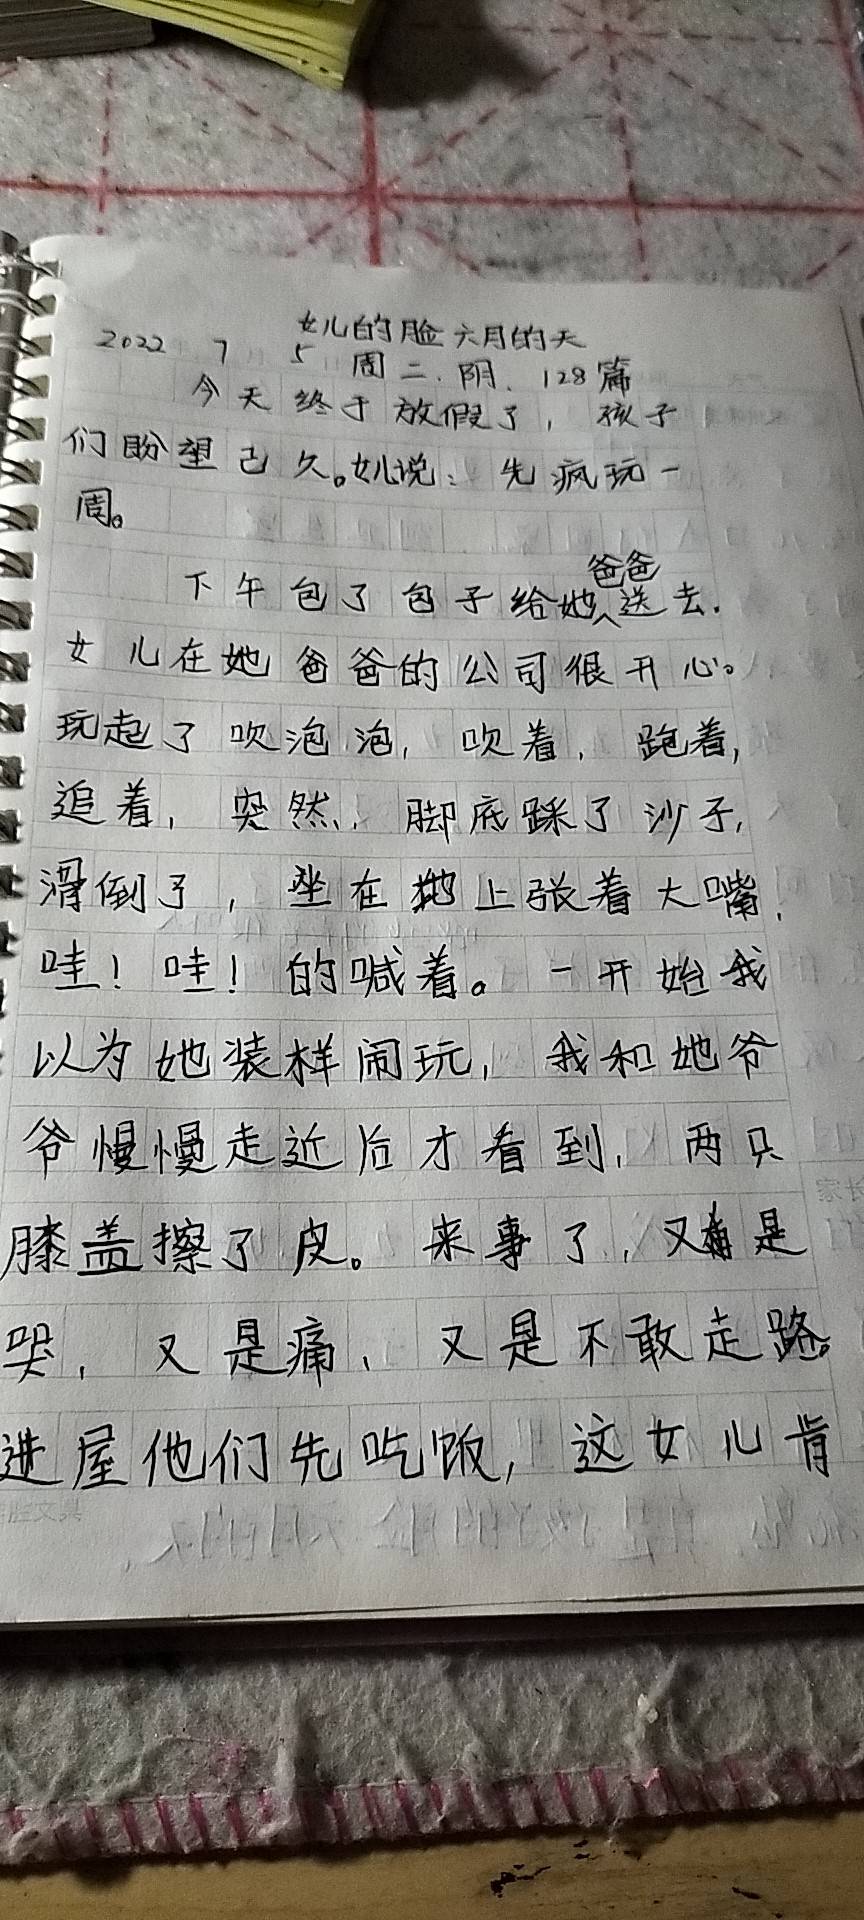 女儿的脸六月的天
2022年7月5 周二.阴.128篇
今天终于放假了，孩子
们盼望已久。女儿说：先疯玩一
周。
下午包了包子给她爸爸送去.
女儿在她爸爸的公司很开心。
玩起了吹泡泡，吹着，跑着，
追着，突然，脚底踩了沙子，
滑倒了，坐在地上张着大嘴，
哇！哇！的喊着。一开始我
以为她装样闹玩，我和她爷
爷慢慢走近后才看到，两只
膝盖擦了皮。来事了，又是
哭，又是痛、又是不敢走路。
进屋他们先吃饭，这女儿肯
家长